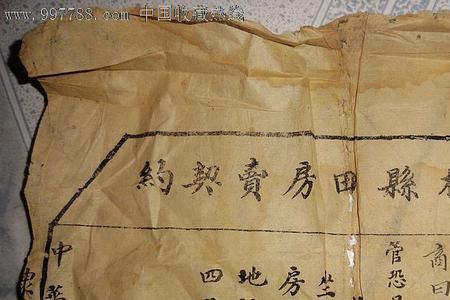 www.997788.com 中国收藏热线
縣田房賣契約
商
管恐
坐
房
地
四
中華